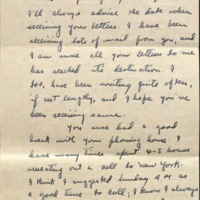 I'll always advise the date when
receiving your letters. I have been
receiving lots of mail from you, and
I am sure all your letters to me
has reached its destination. I
too, have been writing quite often,
if not lengthy, and I hope you've
been receiving same.
You sure had a good
break with your phoning home. I
have many times spent 4-5 hours
sweating out a call to New York.
I think I suggested Sunday AM as
a good time to call; I know I always